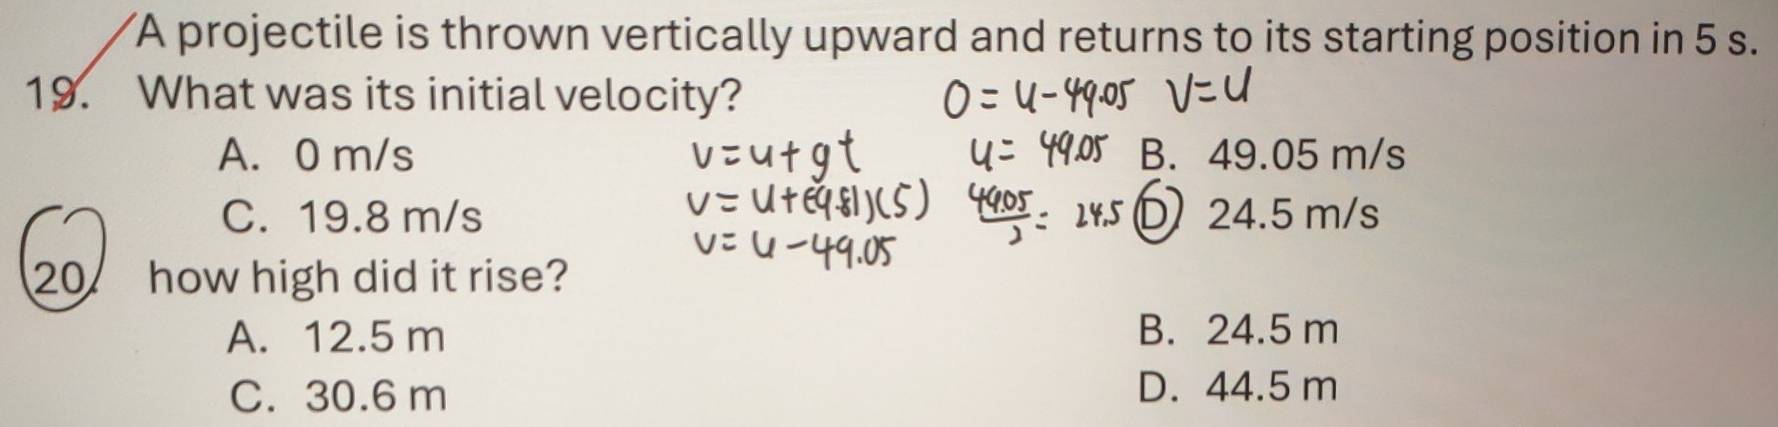 A projectile is thrown vertically upward and returns to its starting position in 5 s.
19. What was its initial velocity? 0 = u - 49.05 v = u
A. 0 m/s v = u + gt u = 49.05 B. 49.05 m/s
C. 19.8 m/s v = u + (-9.81)(5) 49.05/2 = 24.5 D. 24.5 m/s
v = u - 49.05
20. how high did it rise?
A. 12.5 m B. 24.5 m
C. 30.6 m D. 44.5 m